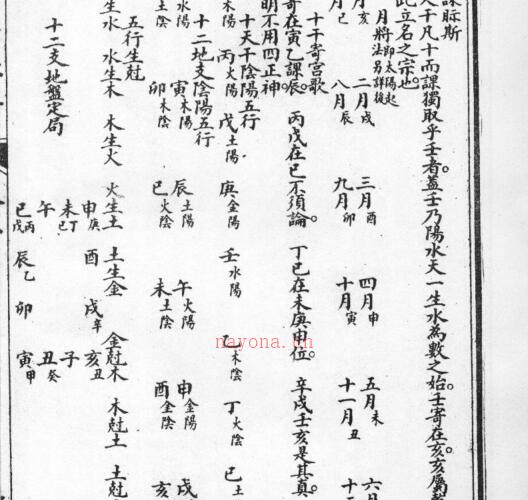 斯
天干凡十而課獨取乎壬者蓋壬乃陽水天一生水為數之始壬寄在亥亥屬
此立名之宗也
月將即太陽起法另詳後
月亥 二月戌 三月酉 四月申 五月未 六月
月巳 八月辰 九月卯 十月寅 十一月丑 十
十干寄宮歌
寄在寅乙課辰 丙戊在巳不須論 丁己在未庚申位 辛戌壬亥是其真
明不用四正神
十天干陰陽五行
木陽 丙火陽 戊土陽 庚金陽 壬水陽 乙木陰 丁火陰 己土
十二地支陰陽五行
水陽 寅木陽 辰土陽 午火陽 申金陽 戌
土陰 卯木陰 巳火陰 未土陰 酉金陰 亥
五行生尅
生水 水生木 木生火 火生土 土生金 金尅木 木尅土 土尅
十二支地盤定局
申庚 酉 戌辛 亥
未丁己 子
午 丑癸
巳丙戊 辰乙 卯 寅甲
nayona.cn